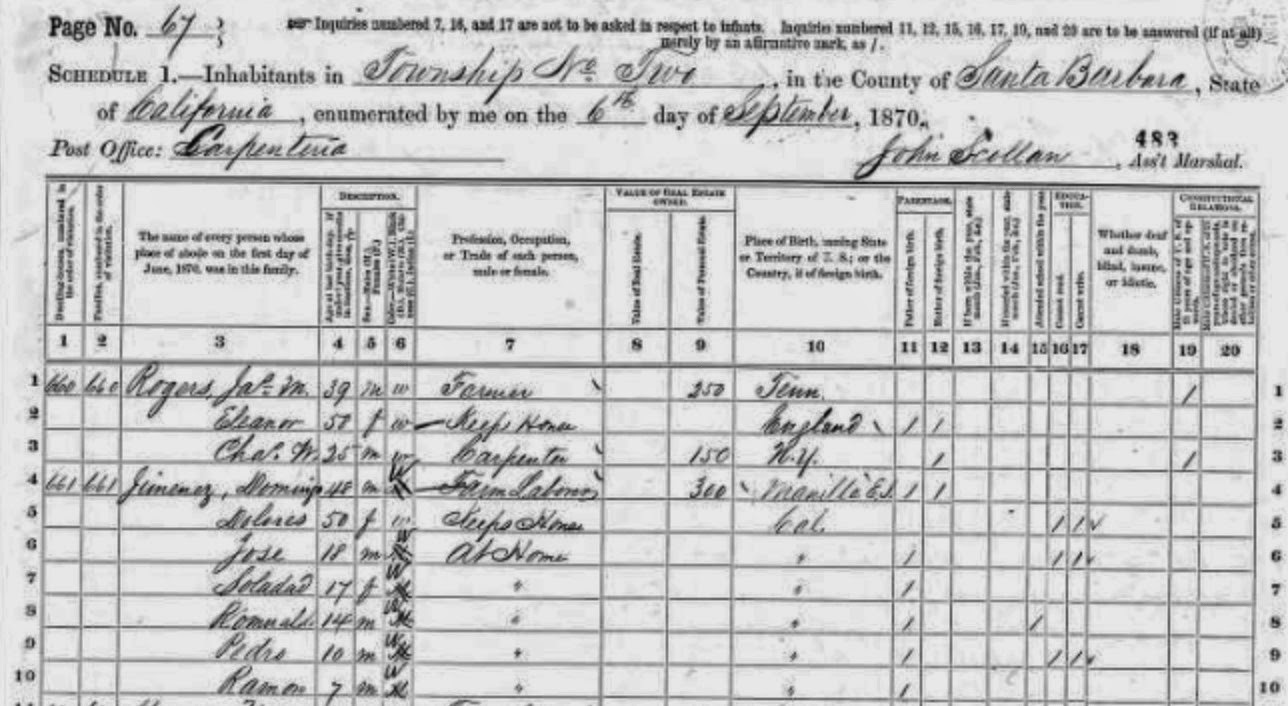 Page No. 67
Inquiries numbered 7, 16, and 17 are not to be asked in respect to infants. Inquiries numbered 11, 12, 15, 16, 17, 19, and 20 are to be answered (if at all)
merely by an affirmative mark, as /.
SCHEDULE 1.—Inhabitants in Township No. Two, in the County of Santa Barbara, State
of California, enumerated by me on the 6th day of September, 1870.
483
Post Office: Carpenteria John Scollan, Ass't Marshal.
DESCRIPTION. VALUE OF REAL ESTATE OWNED. PARENTAGE. EDUCATION. CONSTITUTIONAL RELATIONS.
Dwelling-houses, numbered in the order of visitation.
Families, numbered in the order of visitation.
The name of every person whose place of abode on the first day of June, 1870, was in this family.
Sex.—Males (M.), Females (F.)
Profession, Occupation, or Trade of each person, male or female.
Value of Real Estate.
Value of Personal Estate.
Place of Birth, naming State or Territory of U. S.; or the Country, if of foreign birth.
Father of foreign birth.
Mother of foreign birth.
Attended school within the year.
Cannot read.
Cannot write.
Whether deaf and dumb, blind, insane, or idiotic.
1 2 3 4 5 6 7 8 9 10 11 12 13 14 15 16 17 18 19 20
1 660 660 Rogers, Jas. M. 39 m w Farmer 250 Tenn. 1 1
2 Eleanor 50 f w Keeps House England 1 1 2
3 Chas. W. 25 m w Carpenter 150 N.Y. 1 1 3
4 661 661 Jimenez, Domingo 48 m W Farm Laborer 300 Manilla E.I. 1 1 4
5 Dolores 50 f w Keeps House Cal. 1 1 5
6 Jose 18 m W At Home " 1 1 1 6
7 Soladad 17 f W " " 1 7
8 Romuald. 14 m W " " 1 1 8
9 Pedro 10 m W " " 1 1 1 9
10 Ramon 7 m W " " 1 10